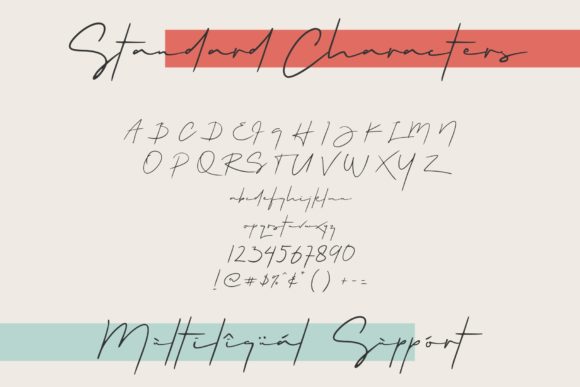 Standard Characters
A B C D E F G H I J K L M N
O P Q R S T U V W X Y Z
abcdefghijklmn
opqrstuvwxyz
1234567890
! @ # $ % ^ & * ( ) + - =
Mùltilîgüál Sùppórt